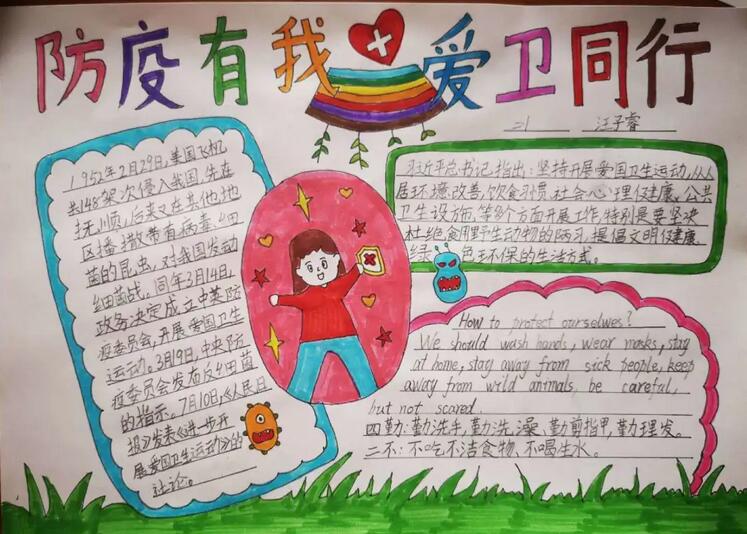 防疫有我 爱卫同行
二1 汪子睿
1952年2月29日,美国飞机
共148架次侵入我国,先在
抚顺,后来又在其他地
区播撒带有病毒、细
菌的昆虫,对我国发动
细菌战。同年3月14日,
政务决定成立中英防
疫委员会,开展爱国卫生
运动。3月9日,中央防
疫委员会发布反细菌
的指示。7月10日,《人民日
报》发表《进一步开
展爱国卫生运动》的
社论。
习近平总书记指出:坚持开展爱国卫生运动,从人
居环境改善、饮食习惯、社会心理健康、公共
卫生设施等多个方面开展工作,特别是要坚决
杜绝食用野生动物的陋习,提倡文明健康、
绿色环保的生活方式。
How to protect ourselwes?
We should wash hands, wear masks, stay
at home, stay away from sick people, keep
away from wild animals, be careful,
but not scared.
四勤:勤洗手、勤洗澡、勤剪指甲,勤理发。
二不:不吃不洁食物、不喝生水。